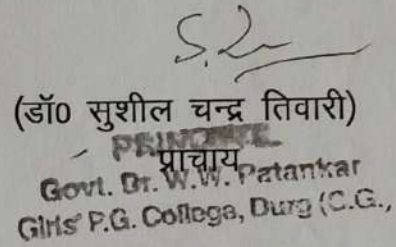 (डॉ0 सुशील चन्द्र तिवारी)
PRINCIPAL
प्राचार्य
Govt. Dr. W.W. Patankar
Girls' P.G. College, Durg (C.G.,